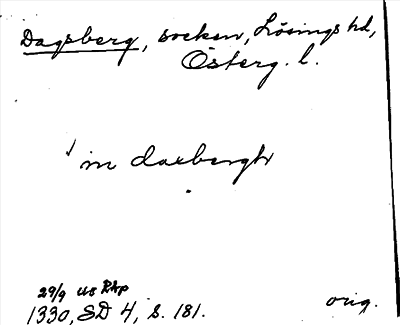 Dagsberg, socken, Lösings hd,
Österg. l.
in daxbergh
29/9 us RAp
1330, SD 4, s. 181.
orig.